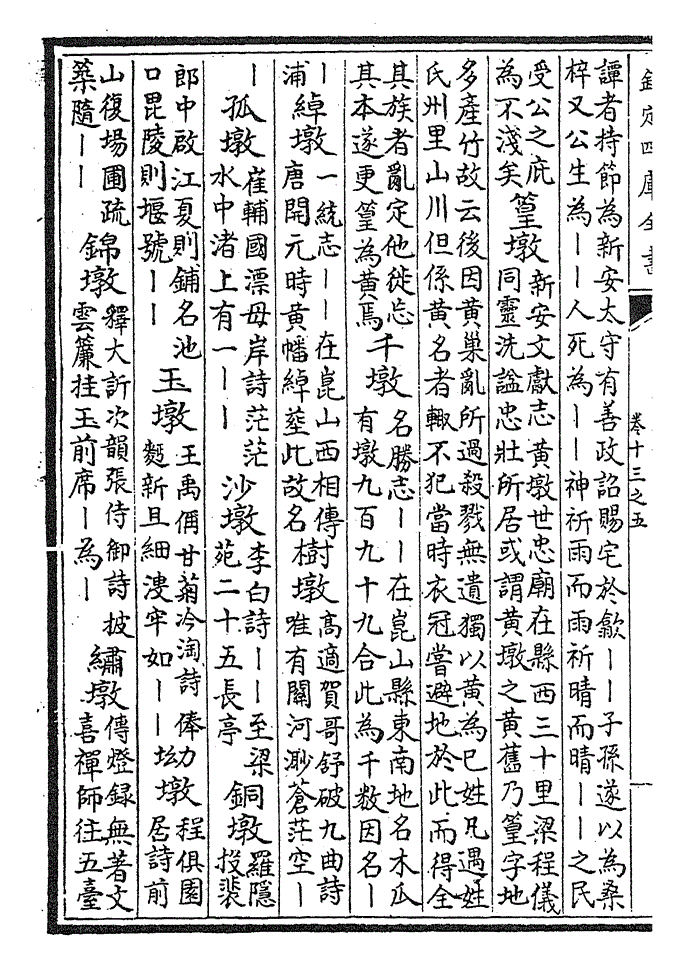 欽定四庫全書
卷十三之五
譚者持節為新安太守有善政詔賜宅於歙——子孫遂以為桑
梓又公生為——人死為——神祈雨而雨祈晴而晴——之民
受公之庇
為不淺矣
篁墩
新安文獻志黃墩世忠廟在縣西三十里梁程儀
同靈洗諡忠壯所居或謂黃墩之黃舊乃篁字地
多產竹故云後因黃巢亂所過殺戮無遺獨以黃為己姓凡遇姓
氏州里山川但係黃名者輒不犯當時衣冠嘗避地於此而得全
其族者亂定他徙忘
其本遂更篁為黃焉
千墩
名勝志——在崑山縣東南地名木瓜
有墩九百九十九合此為千數因名—
—
浦
綽墩
一統志——在崑山西相傳
唐開元時黃幡綽塟此故名
樹墩
高適賀哥舒破九曲詩
唯有關河渺蒼茫空—
—
孤墩
崔輔國漂母岸詩茫茫
水中渚上有一——
沙墩
李白詩——至梁
苑二十五長亭
銅墩
羅隱
投裴
郎中啟江夏則鋪名池
口毘陵則堰號——
玉墩
王禹偁甘菊冷淘詩俸幼
麪新且細溲牢如——
坳墩
程俱園
居詩前
山復場圃疏
築隨——
錦墩
釋大訢次韻張侍御詩披
雲簾挂玉前席—為—
繡墩
傳燈録無著文
喜禪師往五臺